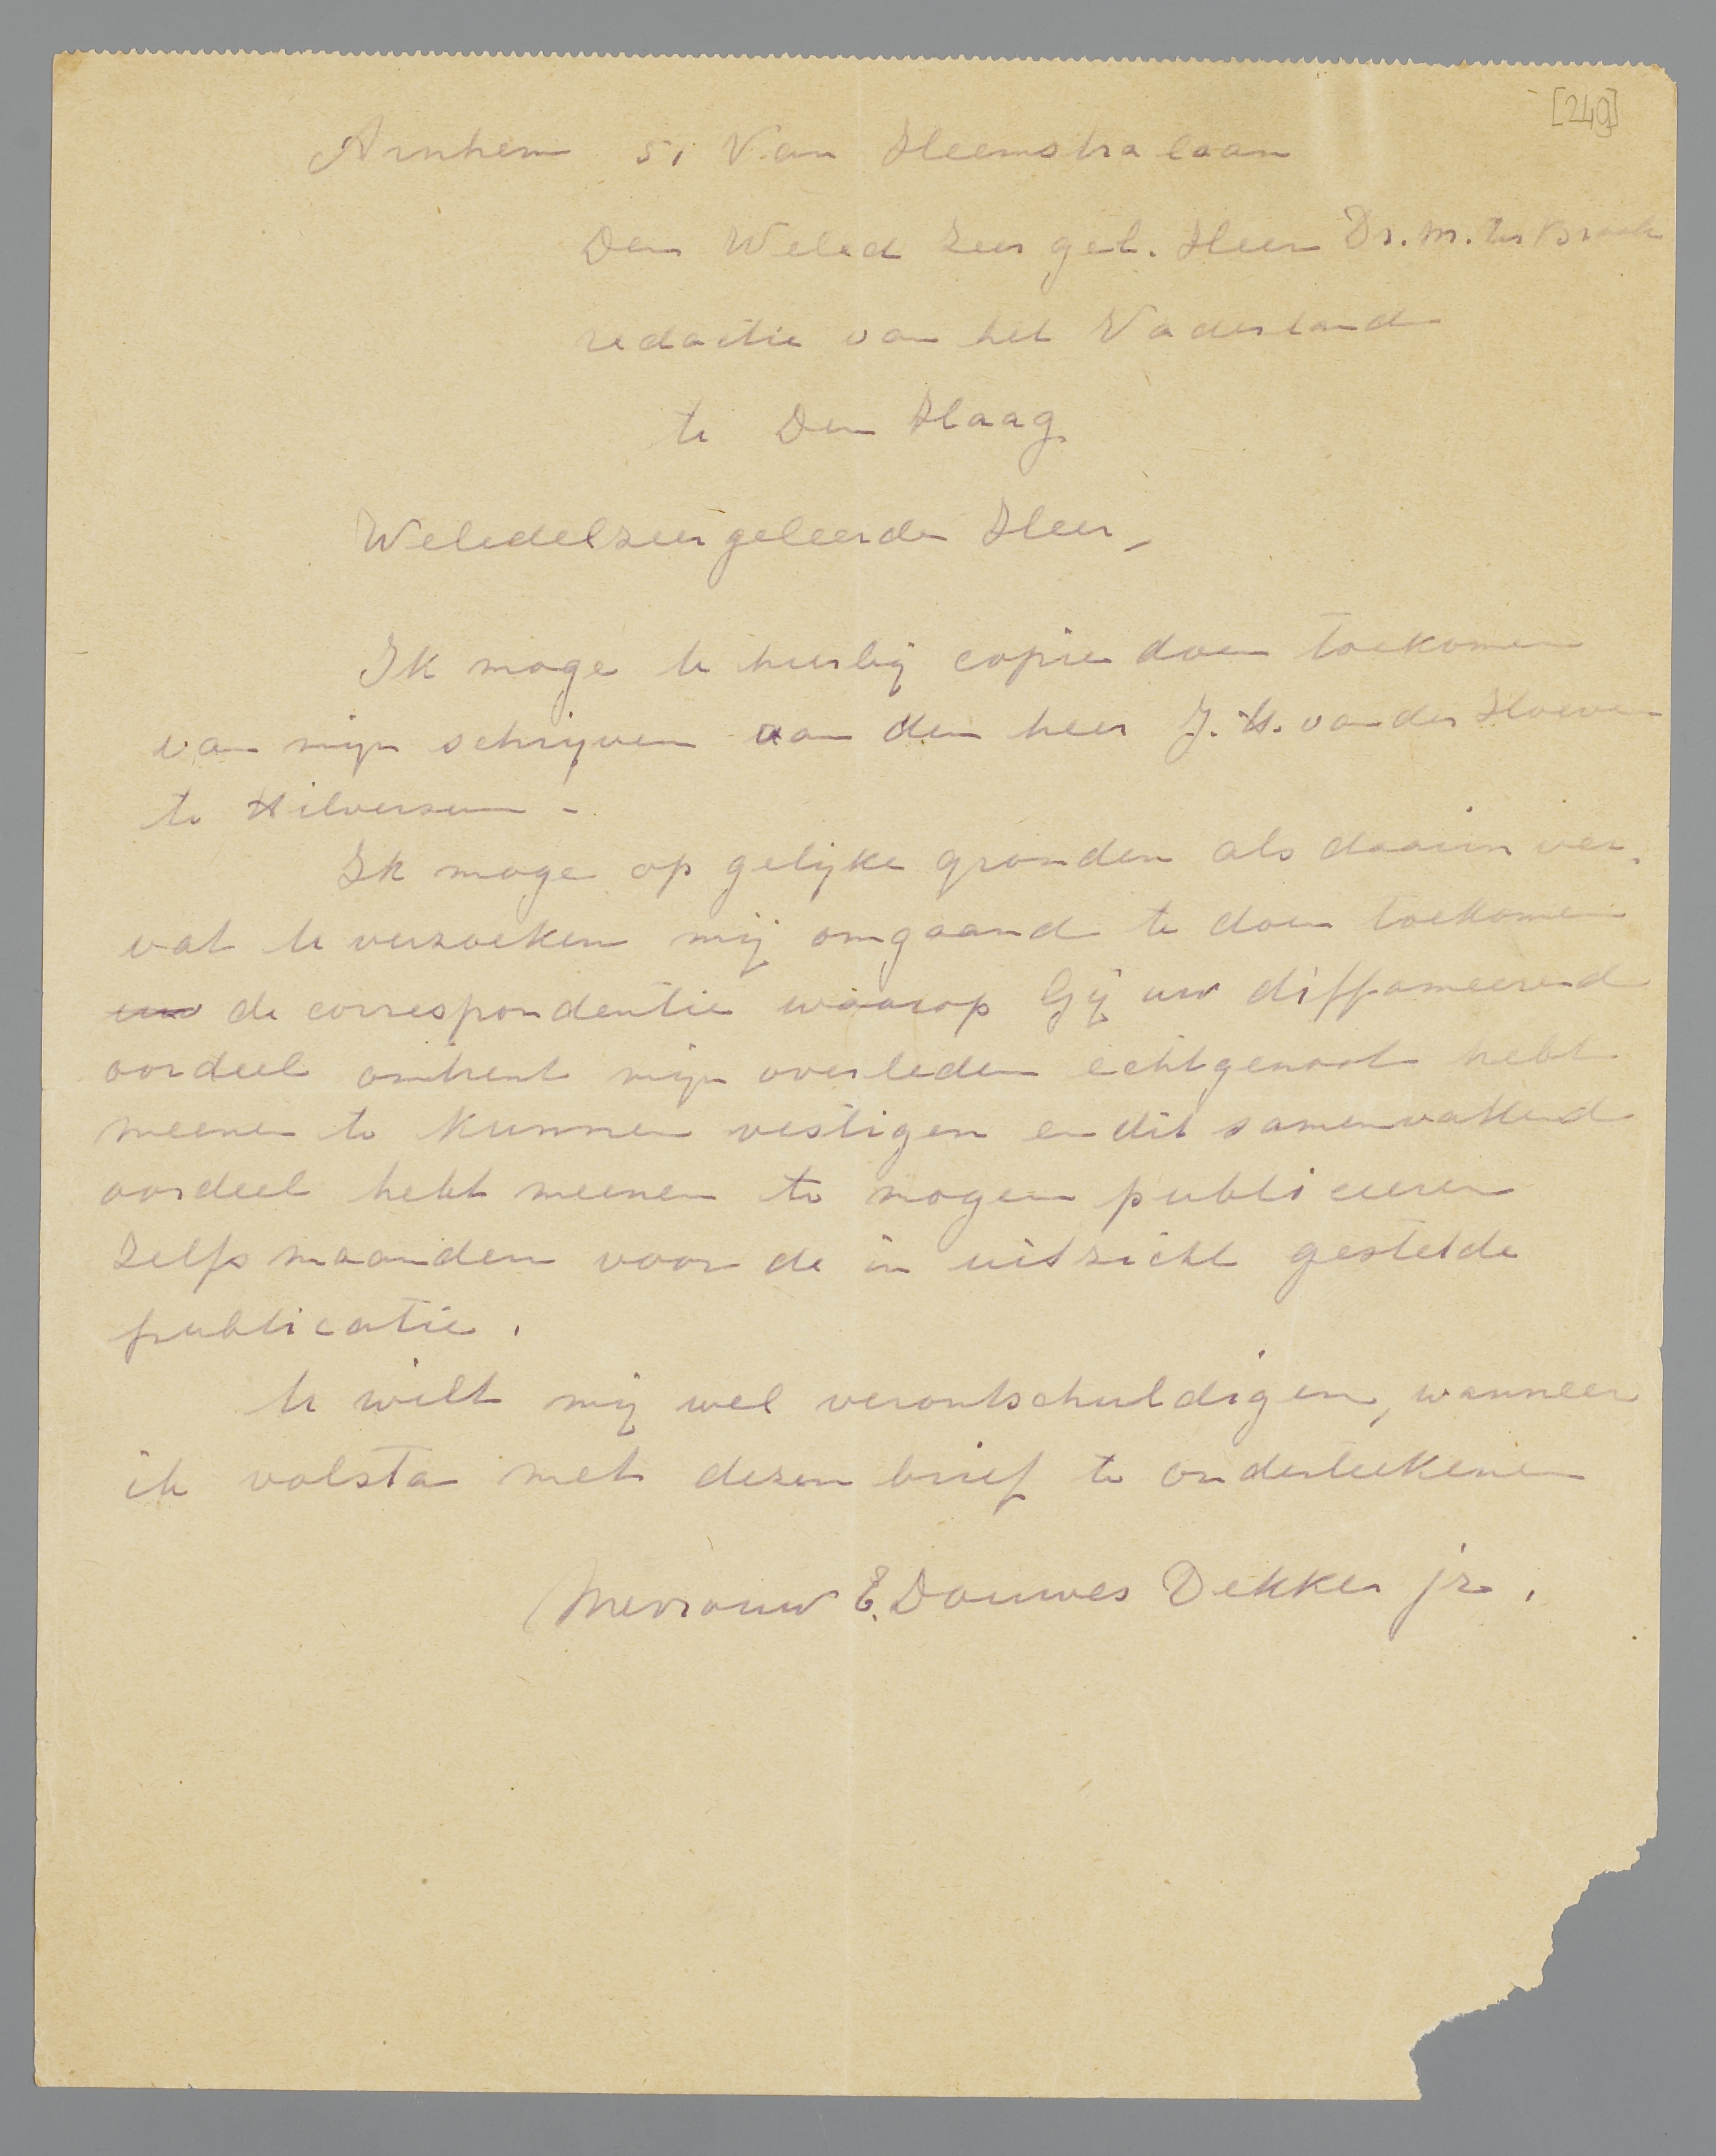 [249]
Arnhem 51 Van Heemstralaan
Den Weled Zeer gel. Heer Dr. M. ter Braak
redactie van het Vaderland
te Den Haag.
Weledelzeergeleerde Heer,
Ik moge U hierbij copie doen toekomen
van mijn schrijven aan den heer J. H. van der Hoeven
te Hilversum -
Ik moge op gelijke gronden als daarin ver-
vat U verzoeken mij omgaand te doen toekomen
uw de correspondentie waarop Gij uw diffameerend
oordeel omtrent mijn overleden echtgenoot hebt
meenen te kunnen vestigen en dit samenvattend
oordeel hebt meenen te mogen publiceeren
zelfs maanden voor de in uitzicht gestelde
publicatie.
U wilt mij wel verontschuldigen, wanneer
ik volsta met dezen brief te onderteekenen
Mevrouw E. Douwes Dekker jr.